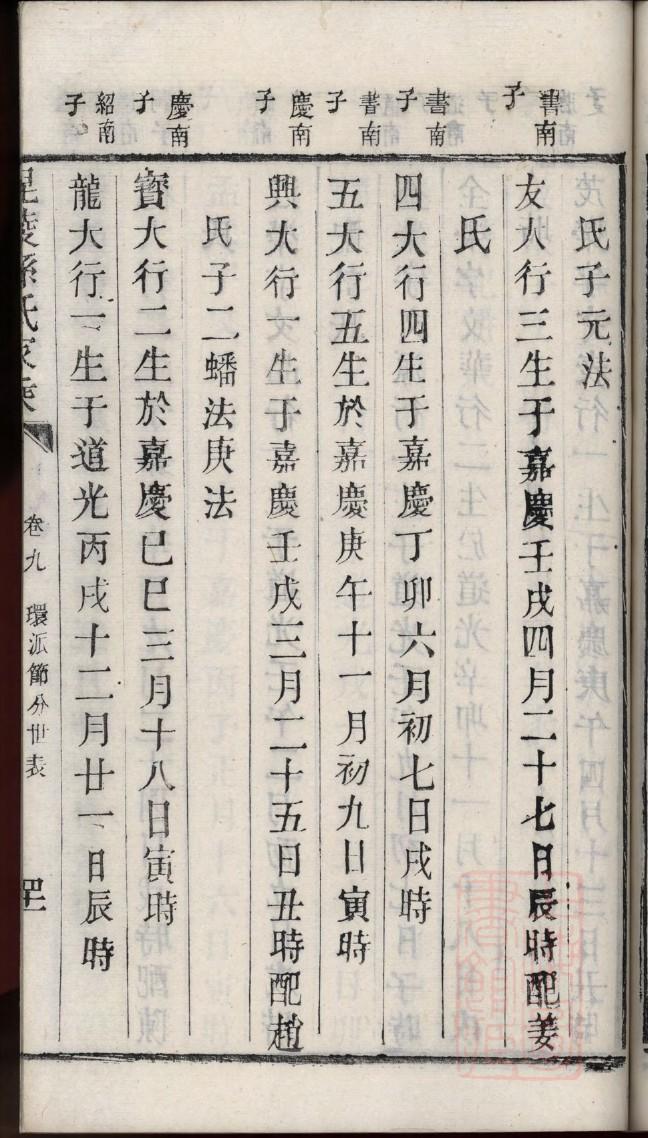 氏子元法
書南子
友大行三生于嘉慶壬戌四月二十七日辰時配姜
氏
書南子
四大行四生于嘉慶丁卯六月初七日戌時
書南子
五大行五生於嘉慶庚午十一月初九日寅時
慶南子
興大行一生于嘉慶壬戌三月二十五日丑時配趙
氏子二蟠法庚法
慶南子
寳大行二生於嘉慶已巳三月十八日寅時
紹南子
龍大行一生于道光丙戌十二月廿一日辰時
毘陵孫氏家乘
卷九 環派節分世表